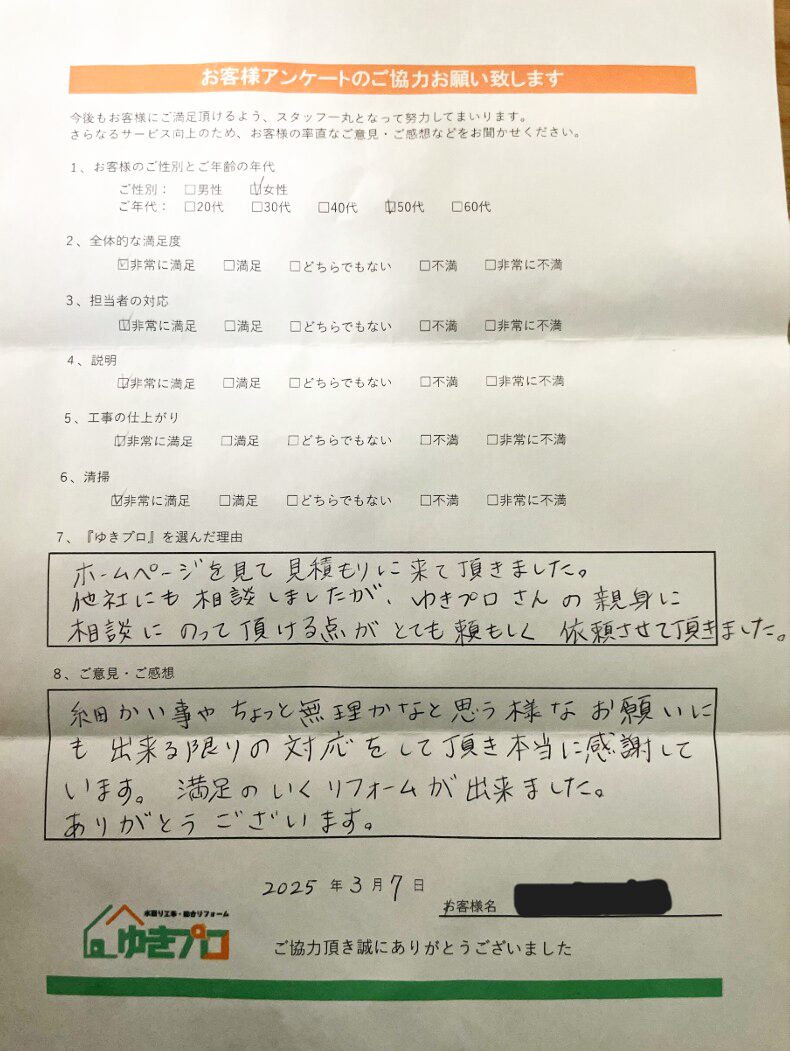 お客様アンケートのご協力お願い致します
今後もお客様にご満足頂けるよう、スタッフ一丸となって努力してまいります。
さらなるサービス向上のため、お客様の率直なご意見・ご感想などをお聞かせください。
1、お客様のご性別とご年齢の年代
ご性別： □男性 ☑女性
ご年代： □20代 □30代 □40代 ☑50代 □60代
2、全体的な満足度
☑非常に満足 □満足 □どちらでもない □不満 □非常に不満
3、担当者の対応
☑非常に満足 □満足 □どちらでもない □不満 □非常に不満
4、説明
☑非常に満足 □満足 □どちらでもない □不満 □非常に不満
5、工事の仕上がり
☑非常に満足 □満足 □どちらでもない □不満 □非常に不満
6、清掃
☑非常に満足 □満足 □どちらでもない □不満 □非常に不満
7、『ゆきプロ』を選んだ理由
ホームページを見て見積もりに来て頂きました。
他社にも相談しましたが、ゆきプロさんの親身に
相談にのって頂ける点がとても頼もしく依頼させて頂きました。
8、ご意見・ご感想
細かい事やちょっと無理かなと思う様なお願いに
も出来る限りの対応をして頂き本当に感謝して
います。満足のいくリフォームが出来ました。
ありがとうございます。
2025年3月7日
お客様名
水廻り工事・総合リフォーム
ゆきプロ
ご協力頂き誠にありがとうございました